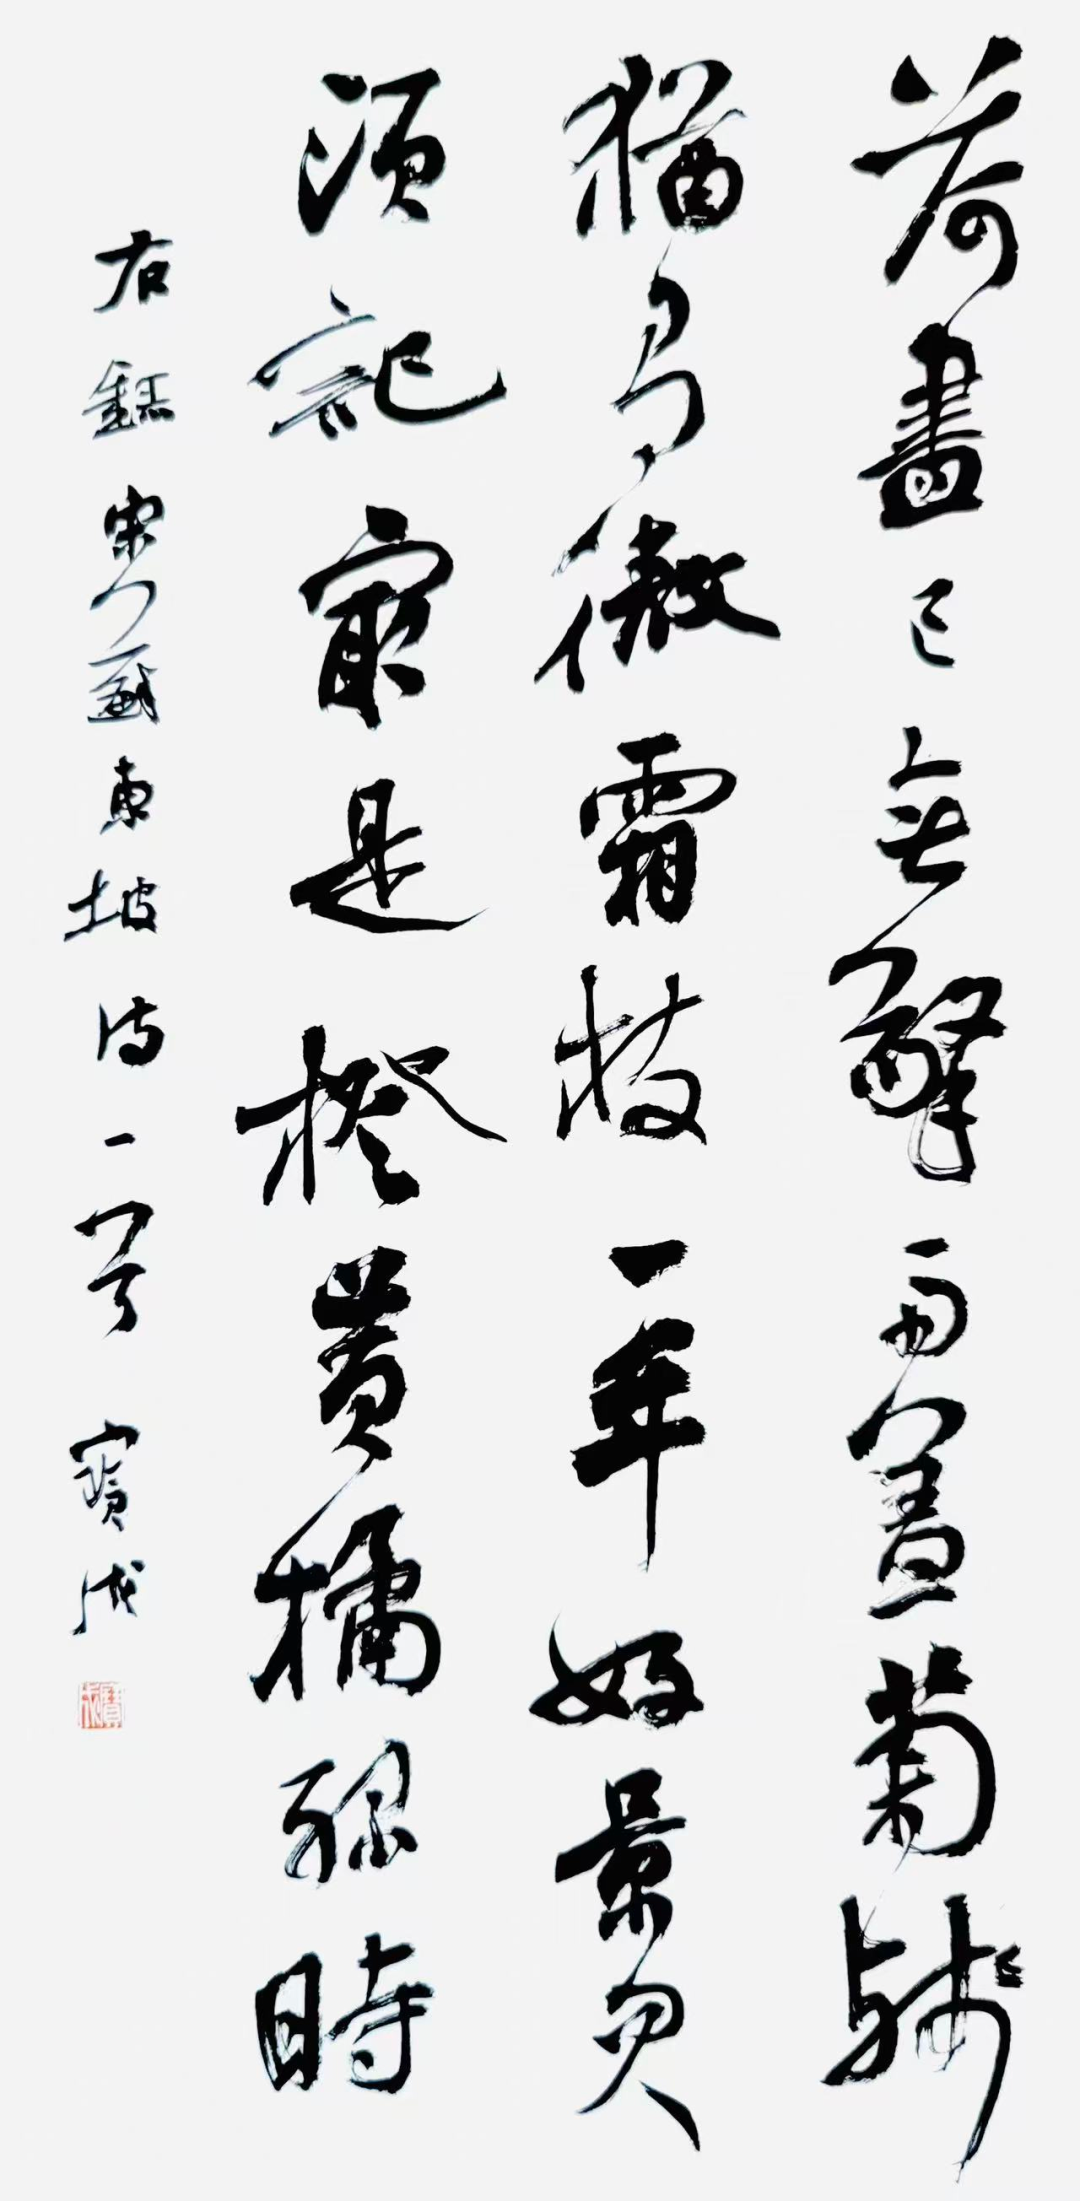 荷盡已無擎雨蓋菊殘
猶有傲霜枝一年好景君
須記最是橙黃橘綠時
右錄宋人蘇東坡詩一首 寶成